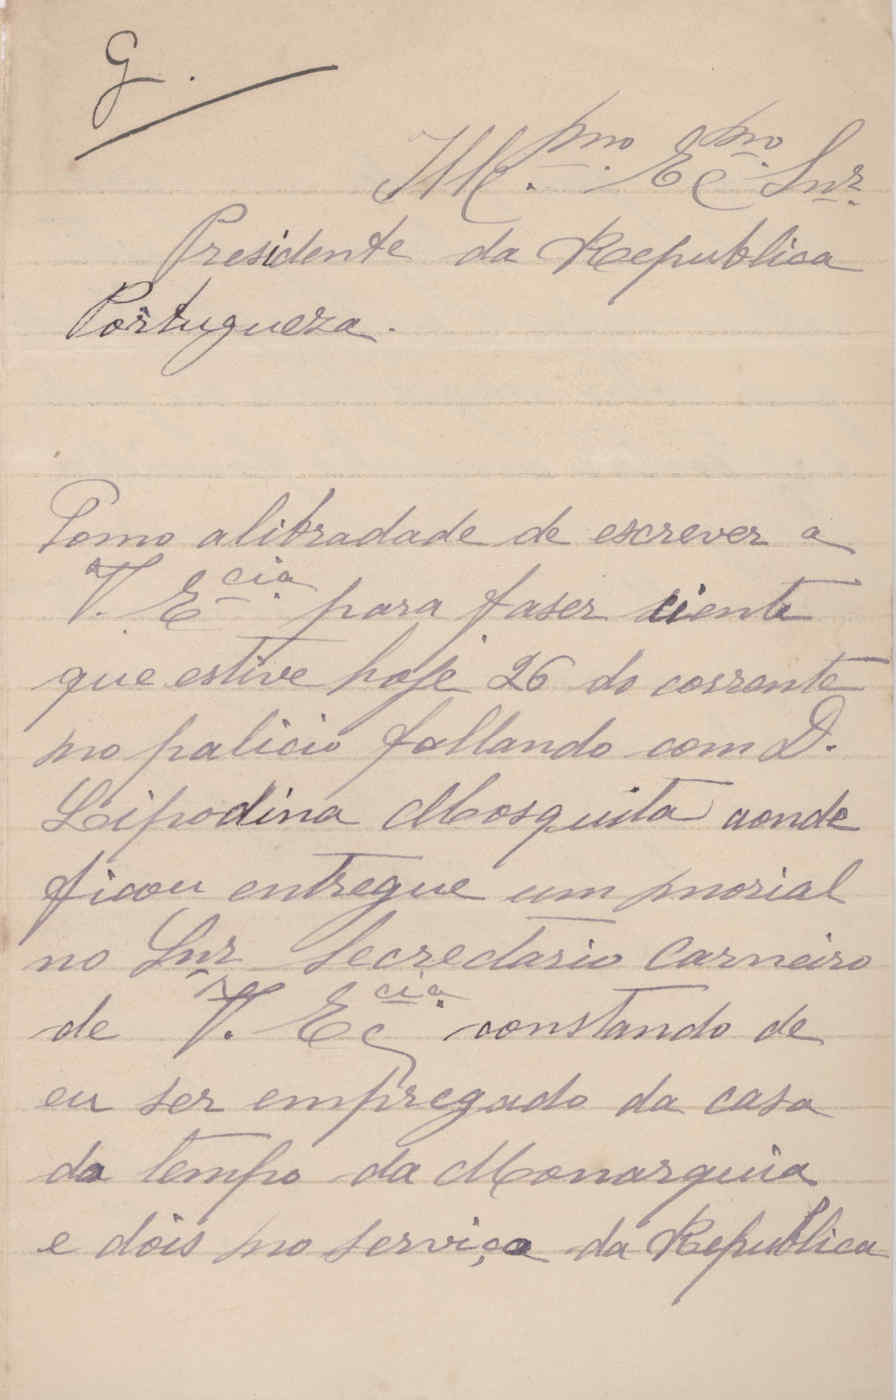 G.
Ill.mo Ec.mo Snr.
Presidente da Republica
Portugueza.
Tomo alibradade de escrever a
V. E.cia para faser ciente
que estive hoje 26 do corrente
no palicio fallando com D.
Leipodina Mosquita aonde
ficou entregue um morial
no Snr Secredario Carneiro
de V. Ec.cia constando de
eu ser empregado da casa
do tempo da Monarquia
e dois no serviço da Republica